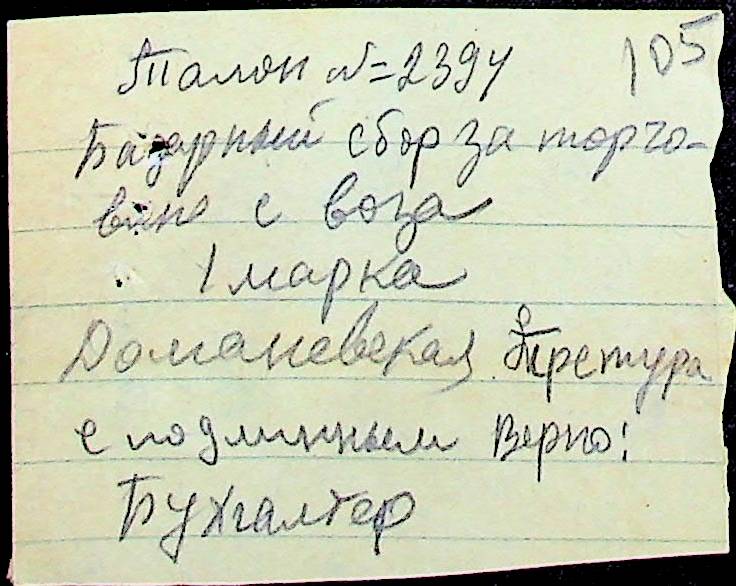 105
Талон №=2394
Базарный сбор за торго-
влю с воза
1 марка
Доманевская претура
с подлинным верно:
Бухгалтер